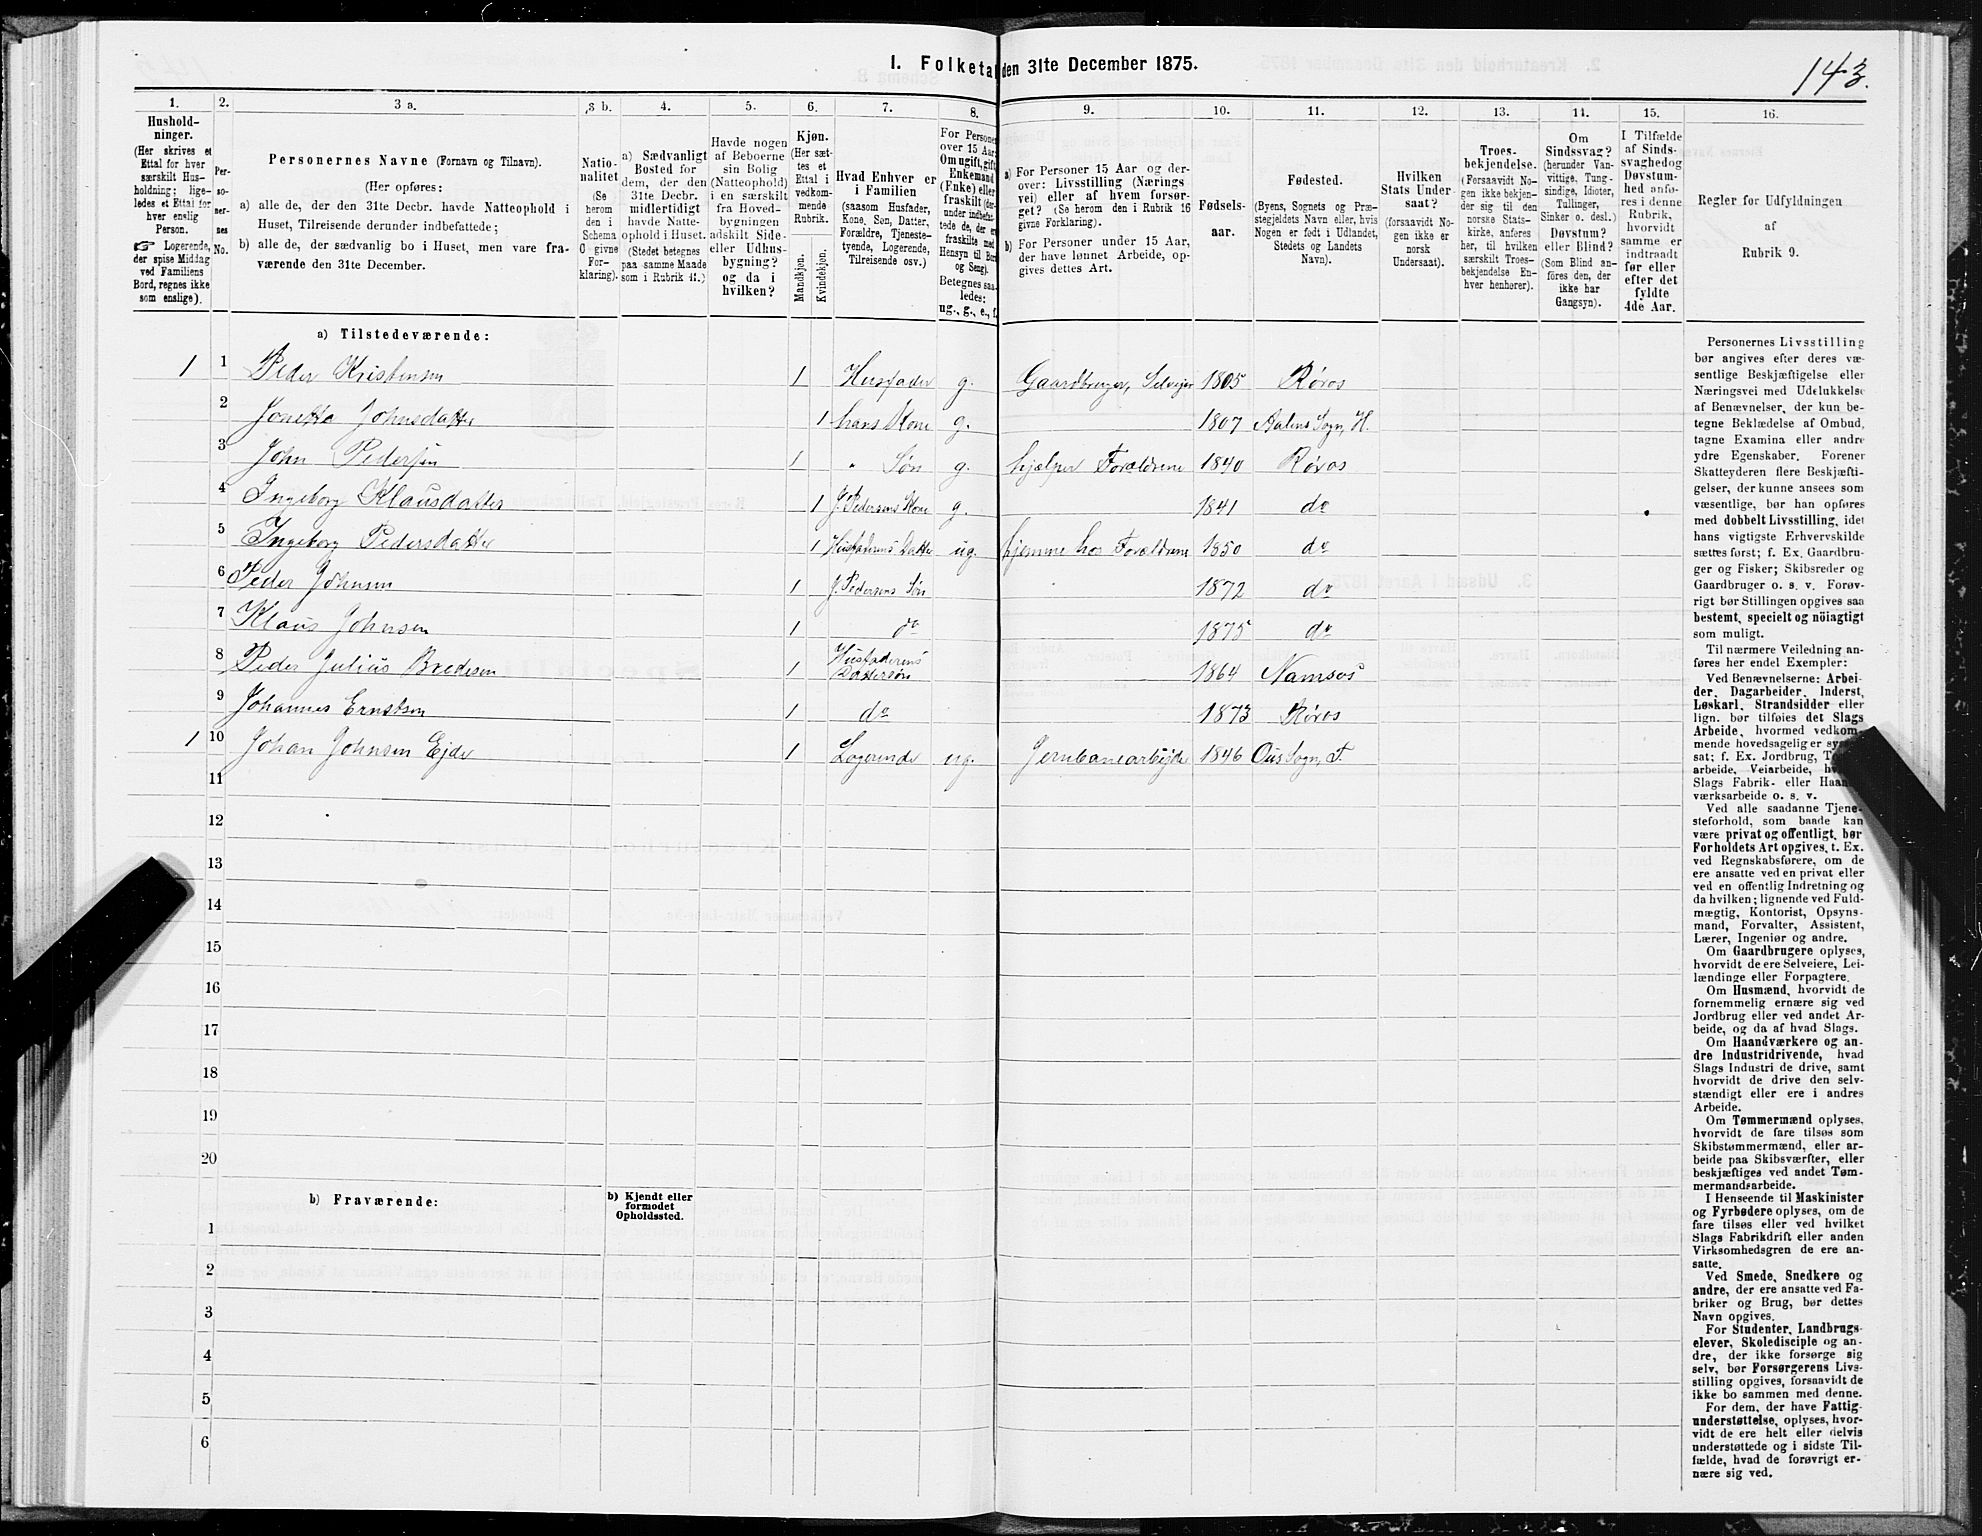 I. Folketa den 31te December 1875.
143.
1.
Hushold-
ninger.
(Her skrives et
Ettal for hver
særskilt Hus-
holdning; lige-
ledes et Ettal for
hver enslig
Person.
☞ Logerende,
der spise Middag
ved Familiens
Bord, regnes ikke
som enslige).
2.
Per-
so-
ner-
nes
No.
3 a.
Personernes Navne (Fornavn og Tilnavn).
(Her opføres:
a) alle de, der den 31te Decbr. havde Natteophold i
Huset, Tilreisende derunder indbefattede;
b) alle de, der sædvanlig bo i Huset, men vare fra-
værende den 31te December.
3 b.
Natio-
nalitet
(Se
herom
den i
Schema
O givne
For-
klaring).
4.
a) Sædvanligt
Bosted for
dem, der den
31te Decbr.
midlertidigt
havde Natte-
ophold i Huset.
(Stedet betegnes
paa samme Maade
som i Rubrik 11.)
5.
Havde nogen
af Beboerne
sin Bolig
(Natteophold)
i en særskilt
fra Hoved-
bygningen
adskilt Side-
eller Udhus-
bygning?
og da i
hvilken?
6.
Kjøn.
(Her sæt-
tes et
Ettal i
vedkom-
mende
Rubrik.
Mandkjøn.
Kvindekjøn.
7.
Hvad Enhver er
i Familien
(saasom Husfader,
Kone, Søn, Datter,
Forældre, Tjeneste-
tyende, Logerende,
Tilreisende osv.)
8.
For Personer
over 15 Aar:
Om ugift, gift,
Enkemand
(Fnke) eller
fraskilt (der-
under indbefat-
tede de, der ere
fraskilte med
Hensyn til Bord
og Seng).
Betegnes saa-
ledes:
ug., g., e., f.
9.
a) For Personer 15 Aar og der-
over: Livsstilling (Nærings
vei) eller af hvem forsør-
get? (Se herom den i Rubrik 16
givne Forklaring).
b) For Personer under 15 Aar,
der have lønnet Arbeide, op-
gives dettes Art.
10.
Fødsels-
aar.
11.
Fødested.
(Byens, Sognets og Præ-
stegjeldets Navn eller, hvis
Nogen er født i Udlandet,
Stedets og Landets
Navn).
12.
Hvilken
Stats Under-
saat?
(forsaavidt No-
gen ikke er
norsk
Undersaat).
13.
Troes-
bekjendelse.
(Forsaavidt No-
gen ikke bekjen-
der sig til den
norske Stats-
kirke, anføres
her, til hvilken
særskilt Troes-
bekjendelse En-
hver henhører).
14.
Om
Sindssvag?
(herunder Van-
vittige, Tung-
sindige, Idioter,
Tullinger,
Sinker o. desl.)
Døvstum?
eller Blind?
(Som Blind an-
føres den, der
ikke har
Gangsyn).
15.
I Tilfælde
af Sinds-
svaghed og
Døvstum-
hed anfø-
res i denne
Rubrik,
hvorvidt
samme er
indtraadt
før eller
efter det
fyldte
4de Aar.
16.
Regler for Udfyldningen
af
Rubrik 9.
a) Tilstedeværende:
1 1 Peder Kristensen 1 Husfader g. Gaardbruger, Selvejer 1805 Røros
2 Jonetta Johnsdatter 1 hans Kone g. 1807 Aalens Sogn, H.
3 John Pedersen 1 " Søn g. hjælper Forældrene 1840 Røros
4 Ingeborg Klausdatter 1 J. Pedersens Kone g. 1841 do
5 Ingeborg Pedersdatter 1 Husfaderens Datter ug. hjemme hos Forældrene 1850 do
6 Peder Johnsen 1 J. Pedersens Søn 1872 do
7 Klaus Johnsen 1 do 1875 do
8 Peder Julius Bredesen 1 Husfaderens Dattersøn 1864 Namsos
9 Johannes Ernstsen 1 do 1873 Røros
1 10 Johan Johnsen Ejde 1 Logerende ug. Jernbanearbejder 1846 Ous Sogn, F.
11
12
13
14
15
16
17
18
19
20
b) Fraværende:
b) Kjendt eller
formodet
Opholdssted.
1
2
3
4
5
6
Personernes Livsstilling
bør angives efter deres væ-
sentlige Beskjæftigelse eller
Næringsvei med Udelukkelse
af Benævnelser, der kun be-
tegne Beklædelse af Ombud,
tagne Examina eller andre
ydre Egenskaber. Forener
Skatteyderen flere Beskjæfti-
gelser, der kunne ansees som
væsentlige, bør han opføres
med dobbelt Livsstilling, idet
hans vigtigste Erhvervskilde
sættes først; f. Ex. Gaardbru-
ger og Fisker; Skibsreder og
Gaardbruger o. s. v. Forøv-
rigt bør Stillingen opgives saa
bestemt, specielt og nöiagtigt
som muligt.
Til nærmere Veiledning an-
føres her endel Exempler:
Ved Benævnelserne: Arbei-
der, Dagarbeider, Inderst,
Løskarl, Strandsidder eller
lign. bør tilføies det Slags
Arbeide, hvormed vedkom-
mende hovedsagelig er
sat; f. Ex. Jordbrug,
arbeide, Veiarbeide,
Slags Fabrik- eller
værksarbeide o. s. v.
Ved alle saadanne Tjene-
steforhold, som baade kan
være privat og offentligt, bør
Forholdets Art opgives, t. Ex.
ved Regnskabsførere, om de
ere ansatte ved en privat eller
ved en offentlig Indretning og
da hvilken; lignende ved Fuld-
mægtig, Kontorist, Opsyns-
mand, Forvalter, Assistent,
Lærer, Ingeniør og andre.
Om Gaardbrugere oplyses,
hvorvidt de ere Selveiere, Lei-
lændinge eller Forpagtere.
Om Husmænd, hvorvidt de
fornemmelig ernære sig ved
Jordbrug eller ved andet Ar-
beide, og da af hvad Slags.
Om Haandværkere og an-
dre Industridrivende, hvad
Slags Industri de drive, samt
hvorvidt de drive den selv-
stændigt eller ere i andres
Arbeide.
Om Tømmermænd oplyses,
hvorvidt de fare tilsøs som
Skibstømmermænd, eller ar-
beide paa Skibsværfter, eller
beskjæftiges ved andet Tøm-
mermandsarbeide.
I Henseende til Maskinister
og Fyrbødere oplyses, om de
fare tilsøs eller ved hvilket
Slags Fabrikdrift eller anden
Virksomhedsgren de ere an-
satte.
Ved Smede, Snedkere og
andre, der ere ansatte ved Fa-
briker og Brug, bør dettes
Navn opgives.
For Studenter, Landbrugs-
elever, Skoledisciple og an-
dre, der ikke forsørge sig
selv, bør Forsørgerens Livs-
stilling opgives, forsaavidt de
ikke bo sammen med denne.
For dem, der have Fattig-
understøttelse, oplyses, hvor-
vidt de ere helt eller delvis
understøttede og i sidste Til-
fælde, hvad de forøvrigt er-
nære sig ved.